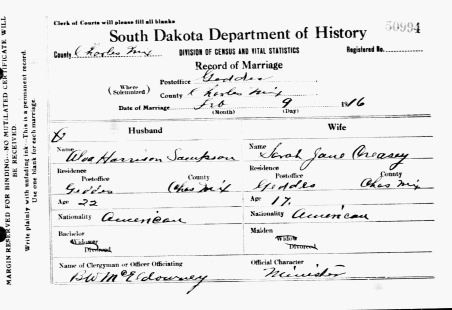 Clerk of Courts will please fill all blanks
50994
South Dakota Department of History
County Charles Mix DIVISION OF CENSUS AND VITAL STATISTICS Registered No.
Record of Marriage
(Where Solemnized)
Postoffice Geddes
County Charles Mix
Date of Marriage Feb 9 1916
(Month) (Day)
Husband Wife
Name Alva Harrison Sampson Name Sarah Jane Creasey
Residence Residence
Postoffice County Postoffice County
Geddes Chas Mix Geddes Chas Mix
Age 22 Age 17
Nationality American Nationality American
Bachelor Maiden
Widower Widow
Divorced Divorced
Name of Clergyman or Officer Officiating Official Character
BW McEldowney Minister
MARGIN RESERVED FOR BINDING—NO MUTILATED CERTIFICATE WILL
BE RECEIVED
Write plainly with unfading ink—This is a permanent record.
Use one blank for each marriage.